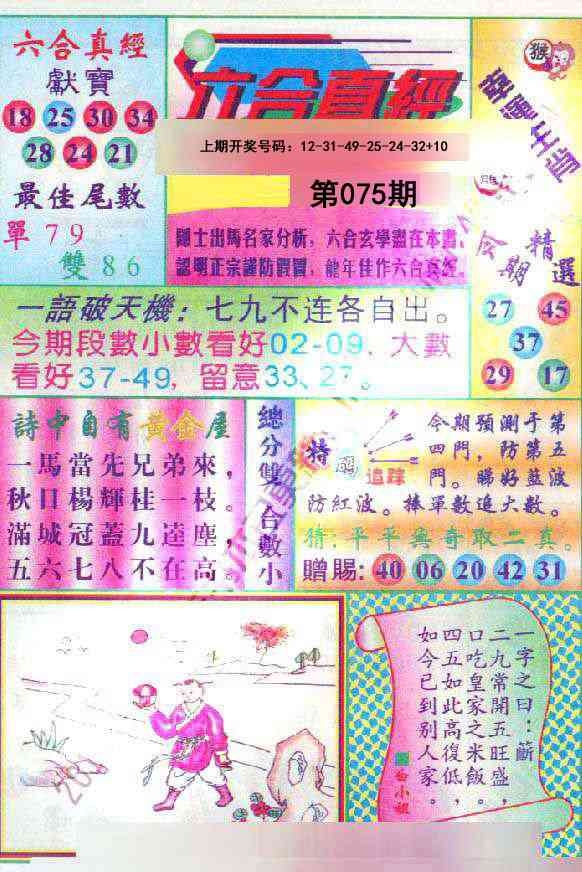 六合真經
獻寶
18 25 30 34
28 24 21
最佳尾數
單 79
雙 86
六合真經
上期开奖号码：12-31-49-25-24-32+10
第075期
隱士出馬名家分析，六合玄學盡在本書，
認明正宗謹防假冒，龍年佳作六合真經。
猴
幸運生肖
精選
27 45
37
29 17
一語破天機：七九不连各自出。
今期段數小數看好02-09、大數
看好37-49，留意33、27。
詩中自有黃金屋
一馬當先兄弟來，
秋日楊輝桂一枝。
滿城冠蓋九逵塵，
五六七八不在高。
總分雙 合數小
特碼追踪
今期預測于第
四門，防第五
門。睇好藍波
防紅波。捧單數追大數。
猜：平平無奇取二真。
贈賜：40 06 20 42 31
一字之曰：斷
二九常開五旺盛，
口吃皇家之米飯，
四五如此高復低，
如今已到别人家。
白小姐